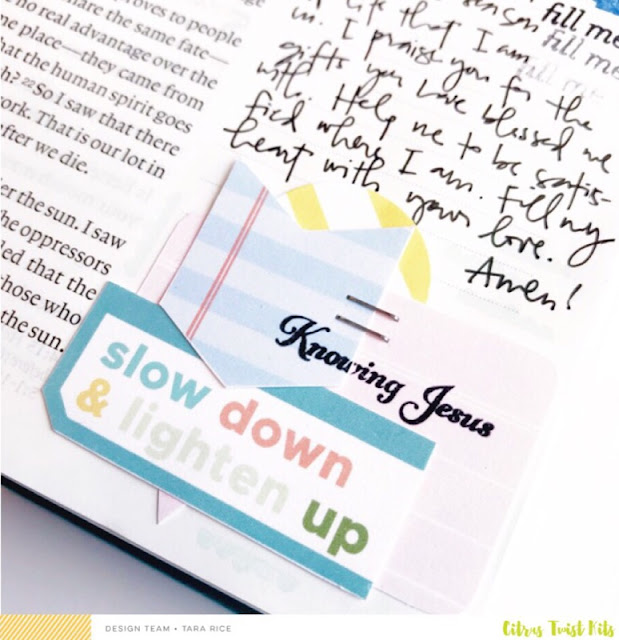 roves to people
hare the same fate—
no real advantage over the
ne place—they came from
hat the human spirit goes
h? 22 So I saw that there
ork. That is our lot in
after we die.
er the sun. I saw
he oppressors
led that the
hose who
the sun.
life that I am
in. I praise you for the
gifts you have blessed me
with. Help me to be satis-
fied where I am. Fill my
heart with your love.
Amen!
fill me
fill me
fill me
Knowing Jesus
slow down
& lighten up
DESIGN TEAM • TARA RICE
Citrus Twist Kits